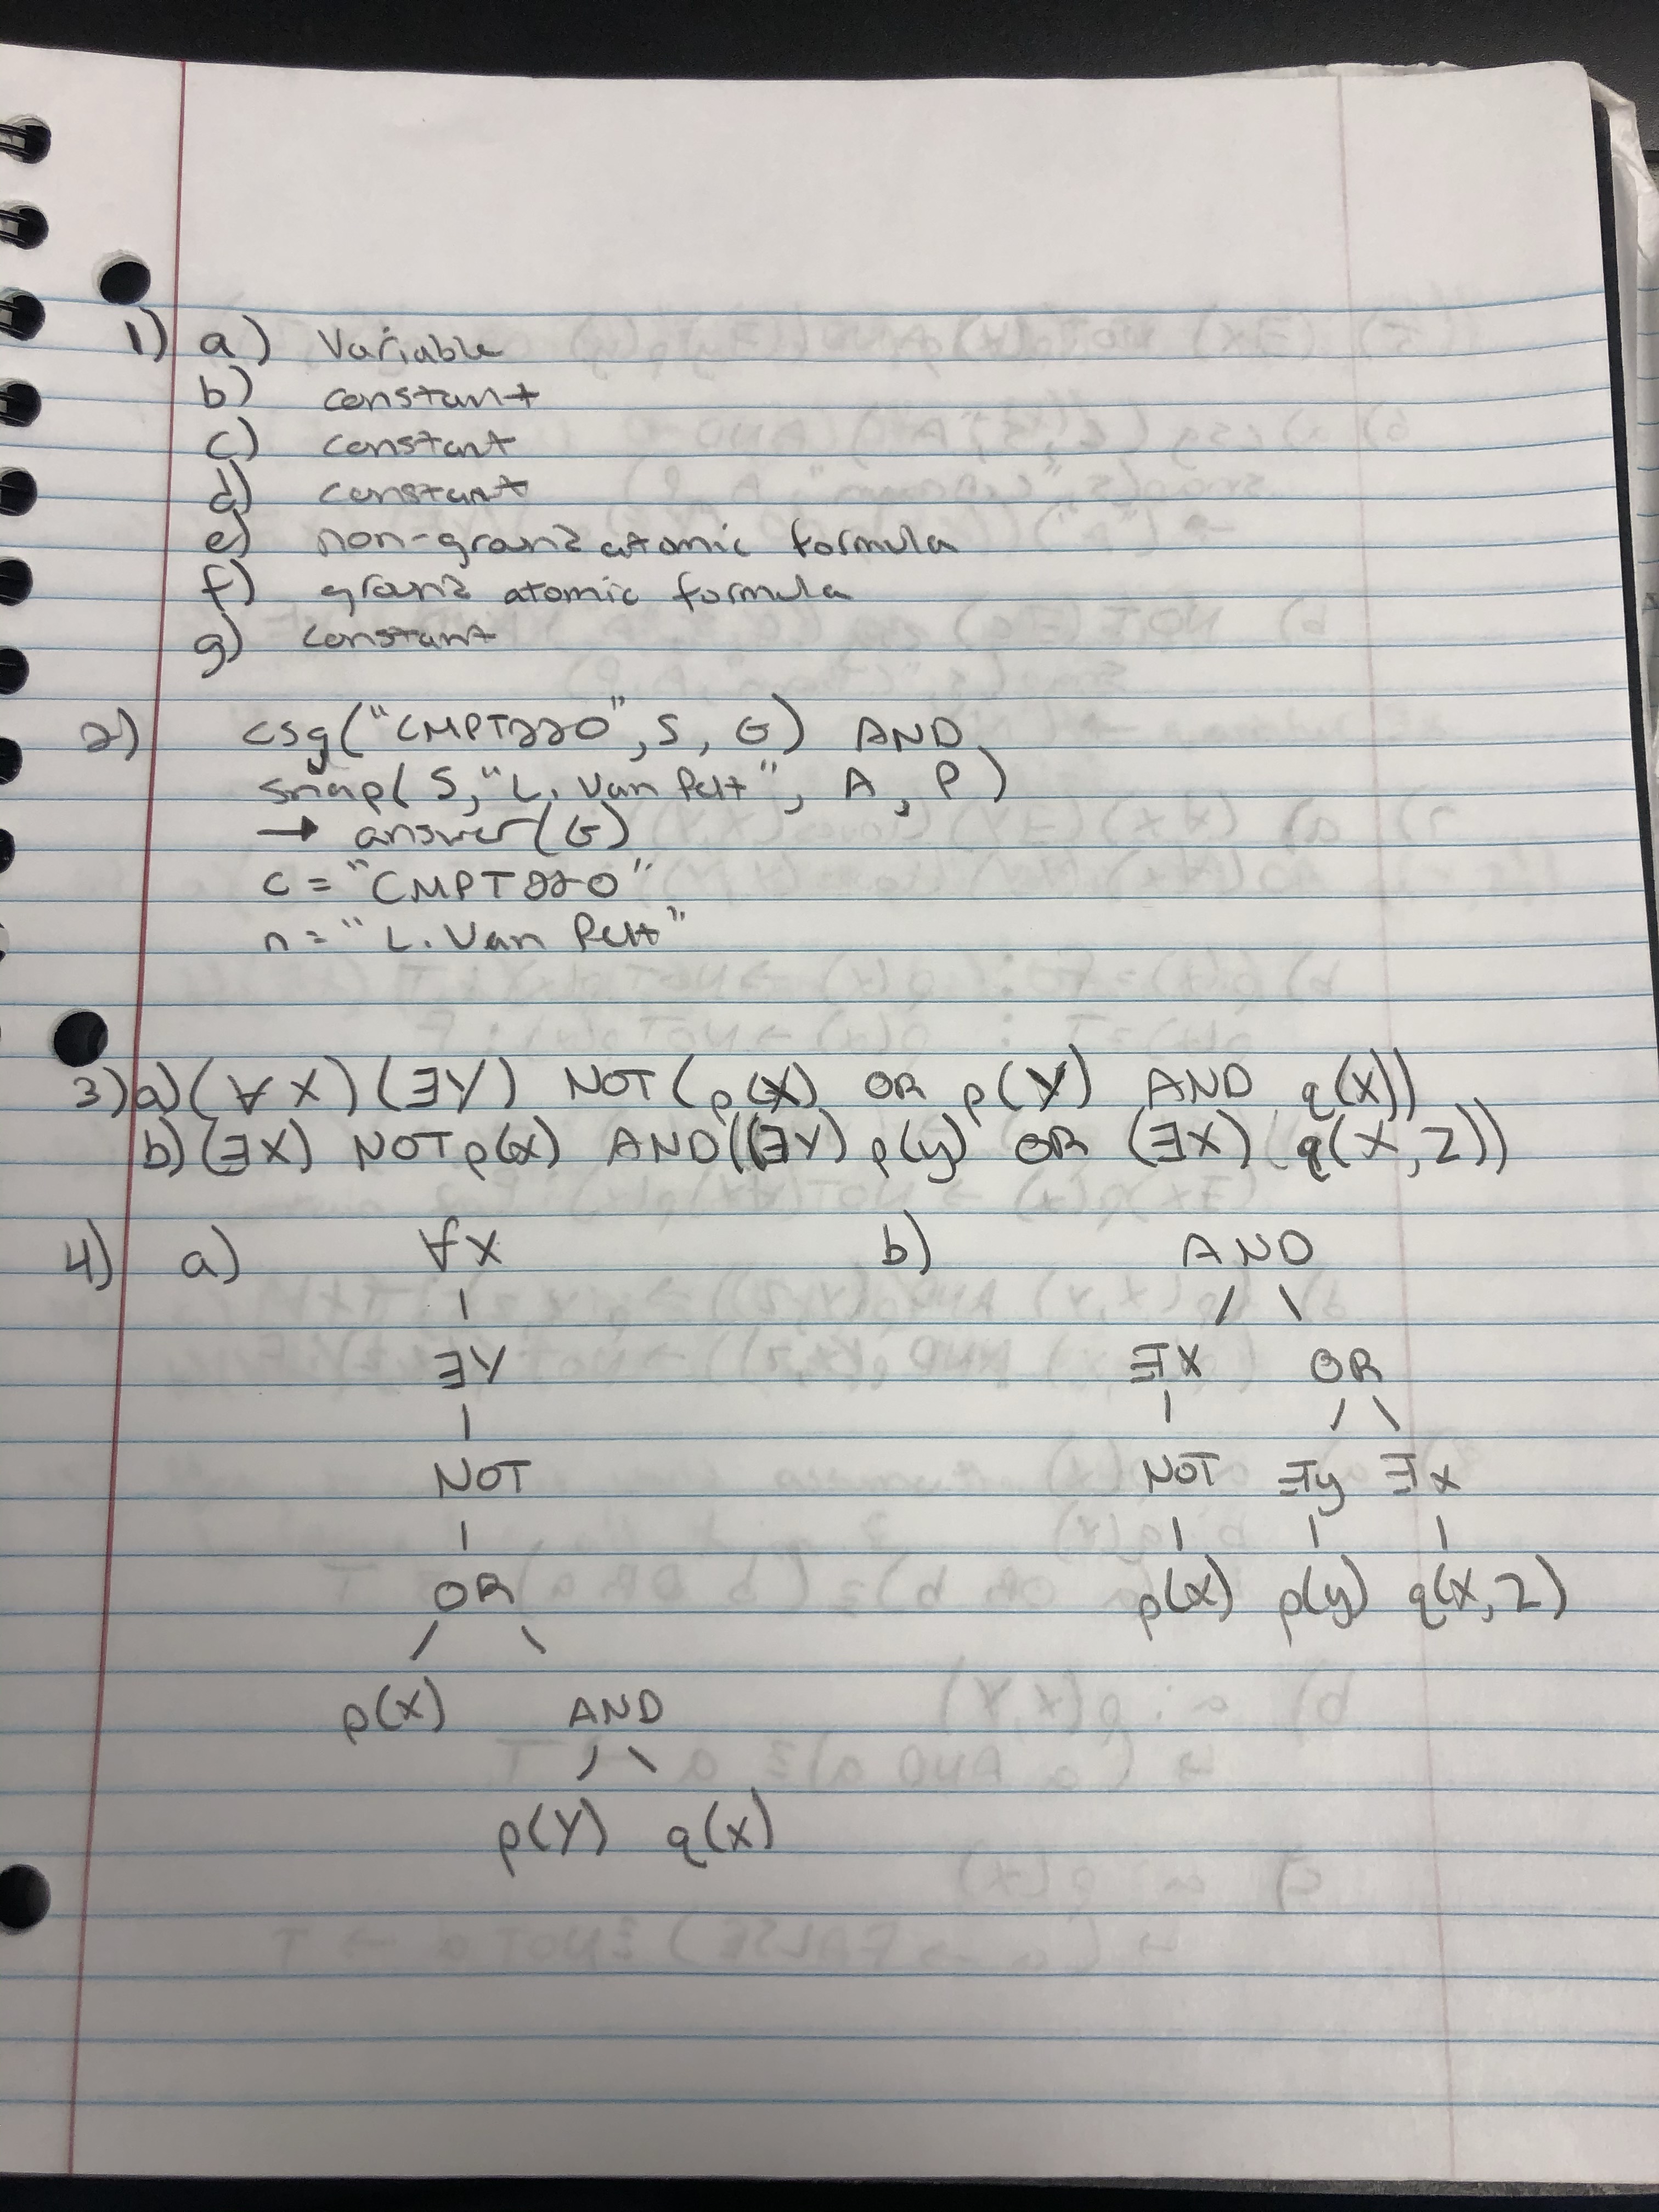 1) a) Variable
b) constant
c) constant
d) constant
e) non-ground atomic formula
f) ground atomic formula
g) constant
2) csg("CMPT220", S, G) AND
snap(S, "L. Van Pelt", A, P)
→ answer(G)
c = "CMPT220"
n = "L. Van Pelt"
3) a) (∀X) (∃Y) NOT (p(X) OR p(Y) AND q(X))
b) (∃X) NOT p(x) AND ((∃Y) p(y) OR (∃X) q(X, Z))
4) a) ∀X b) AND
∃Y ∃X OR
NOT NOT ∃y ∃x
OR p(x) p(y) q(x, Z)
p(X) AND
p(Y) q(x)